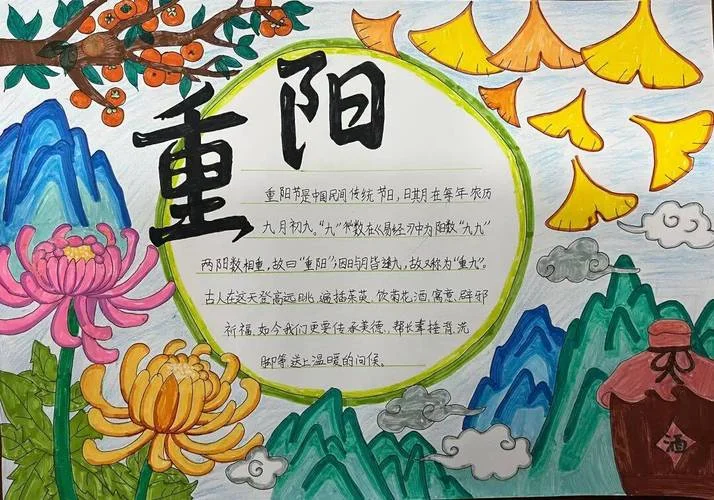 重阳
重阳节是中国民间传统节日，日期在每年农历
九月初九。“九”数在《易经》中为阳数“九九”
两阳数相重，故曰“重阳”；因日与月皆逢九，故又称为“重九”。
古人在这天登高远眺、遍插茱萸、饮菊花酒，寓意、辟邪
祈福，如今我们更要传承美德，帮长辈捶背、洗
脚等，送上温暖的问候。
酒